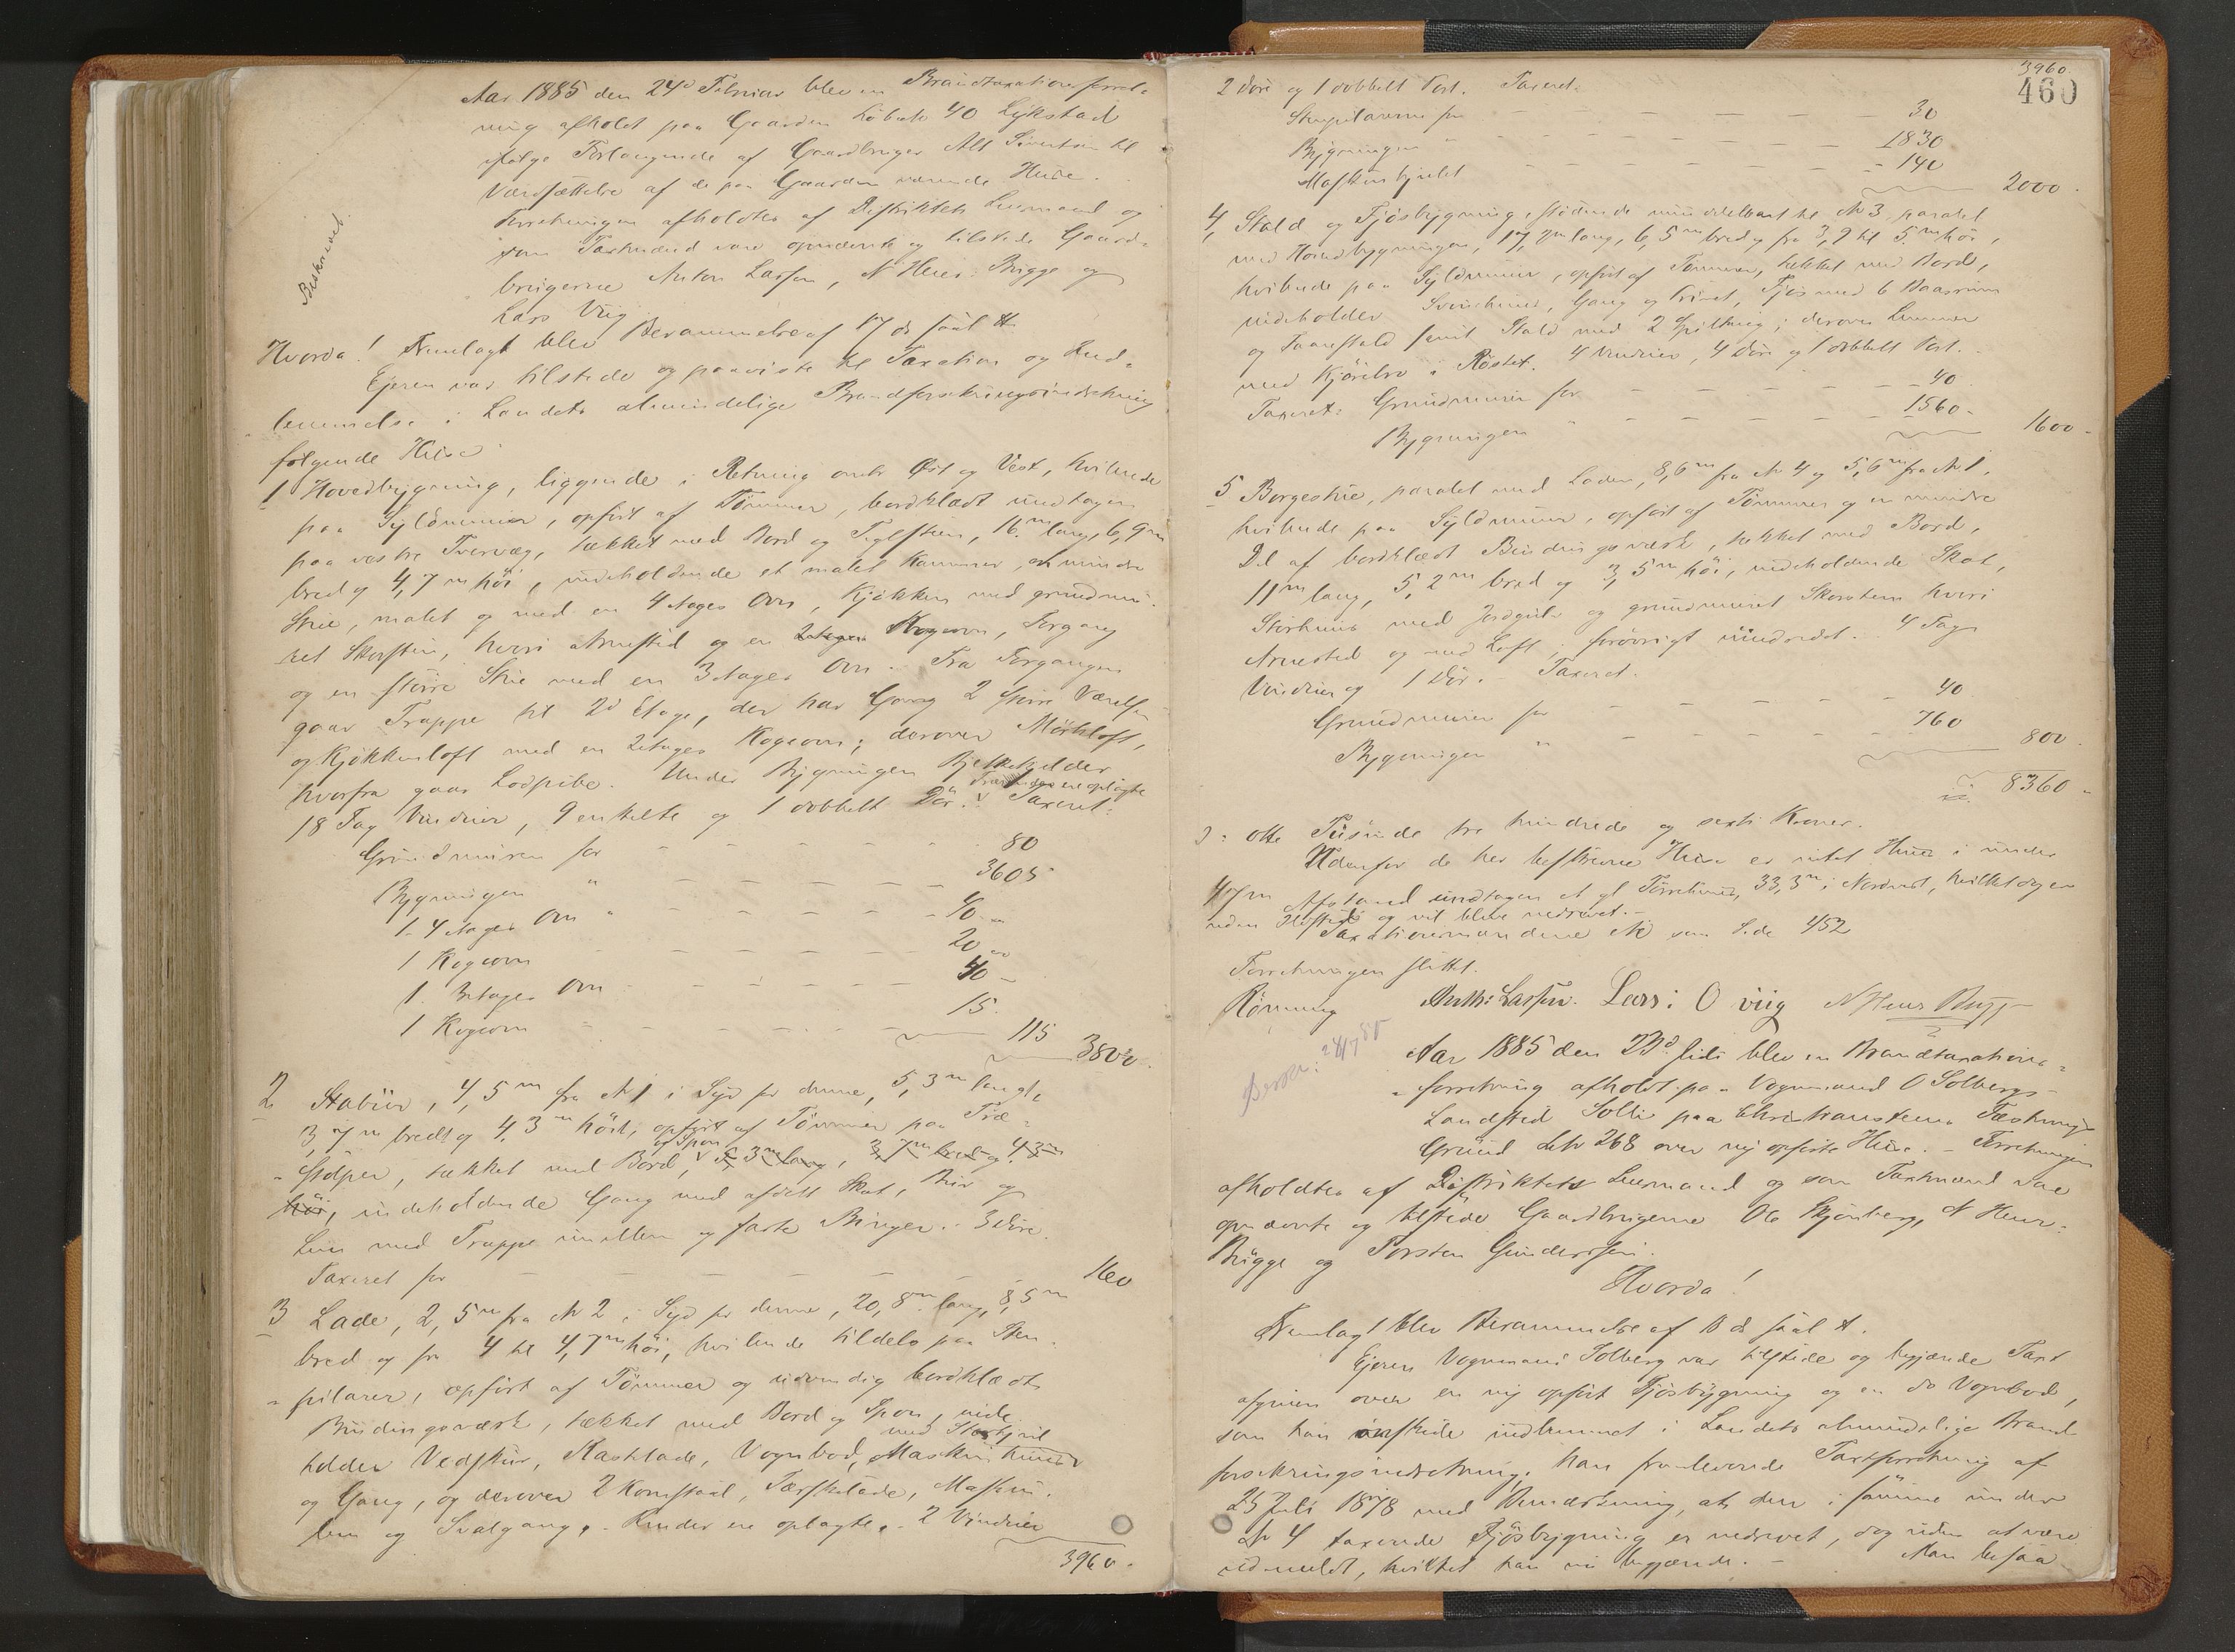 Aar 1885 den 24de Februar blev en Brandtaxationsforret-
ning afholdt paa Gaarden Löbnr 40 Lykstad
ifølge Forlangende af Gaardbruger Alf Sivertsen til
Værdsættelse af de paa Gaarden værende Huse.
Forretningen afholdtes af Distriktets Lensmand og
som Taxtmænd vare opnævnte og tilstede Gaard-
brugerne Anton Larsen, N Heier-Brygge og
Lars Viig
Beskrevet
Hvorda! Fremlagt blev Berammelse af 17 ds saal #
Ejeren var tilstede og paaviste til Taxation og Ind-
lemmelse i Landets almindelige Brandforsikringsindretning
følgende Huse
1 Hovedbygning, liggende i Retning omtr Øst og Vest, hvilende
paa Syldmuur, opført af Tømmer, bordklædt undtagen
paa vestre Tvervæg, tækket med Bord og Teglsten, 16m lang, 6,9m
bred og 4,7m høi, indeholdende et malet Kammer, en mindre
Stue, malet og med en 4 Etages Ovn, Kjøkken med grundmu-
ret Skorsten, hvori Arnested og en 2 etages Kogeovn, Forgang
og en større Stue med en 3 etages Ovn. Fra Forgangen
gaar Trappe til 2d Etage, der har Gang 2 Værelser
og Kjøkkenloft med en 2 etages Kogeovn; derover Mörkloft,
hvorfra gaar Lodpibe. Under Bygningen Kjelder
Trævinder ere oplagte
18 Fag Vinduer, 9 enkelte og 1 dobbelt Dør. v Taxeret:
Grundmuren for 80
Bygningen " 3605
1. 4 Etages Ovn " 40 "
1 Kogeovn 20 "
1. 3 etages Ovn 40 -
1 Kogeovn 15.
115
3800.
2 Stabur, 4,5m fra No 1 i Syd for denne, 5,3m langt,
3,7m bredt og 4,3m høit, opført af Tømmer paa Træ-
og Spon
stolper, tækket med Bord, v 5,3m lang, 3,7m bred og 4,3m
høi, indeholdende Gang med afdelt Skot, Bur og
Lem med Trappe imellem og faste Binger. 3 Døre.
Taxeret for 160
3 Lade, 2,5m fra No 2 i Syd for denne, 20,8m lang, 8,5m
bred og fra 4 til 4,7m høi, hvilende tildels paa Sten-
pilarer, opført af Tømmer og udvendig bordklædt
Bindingsværk, tækket med Bord og Spon, inde
holder Vedskur, Kastelade, Vognbod, Maskinhuus
og Gang, og derover 2 Kornstaal, Tærskelade, Maskin-
lem og Svalgang. Kinder ere oplagte. 2 Vinduer
3960.
3960
460
2 Döre og 1 dobbelt Port. Taxeret:
Stenpilarerne for 30
Bygningen " 1830
Maskinhjulet 140
2000.
4, Stald og Fjøsbygning, stødende umiddelbart til No 3, paralel
med Hovedbygningen, 17,2m lang, 6,5m bred og fra 3,9 til 5m høi,
hvilende paa Syldmuur, opført af Tømmer, tækket med Bord,
indeholder Svinehuus, Gang og Privet, Fjøs med 6 Baasrum
og Faarestald samt Stald med 2 Spiltaug; derover Lemmer
med Kjörebro i Röstet. 4 Vinduer, 4 Döre og 1 dobbelt Port.
Taxeret: Grundmuren for 40
Bygningen " 1560.
1600.
5 Borgestue, paralel med Laden, 8,6m fra No 4 og 5,6m fra No 1.
hvilende paa Syldmuur, opført af Tømmer og en mindre
Del af bordklædt Bindingsværk, tækket med Bord,
11m lang, 5,2m bred og 3,5m høi, indeholdende Skot,
Stolshuus med Jordgulv og grundmuret Skorsten hvori
Arnested og med Loft, forövrigt uindredet. 4 Fag
Vinduer og 1 Dör. Taxeret.
Grundmuren for 40
Bygningen " 760
800.
8360.
Ɔ: otte Tusinde tre hundrede og sexti Kroner.
Udenfor de her beskrevne Huse er intet Huus i under
47m Afstand undtagen et gl Tørrehuus, 33,3m i Nordvest, hvilket dog er
uden Ildsted og vil blive nedrevet.
Taxationsmændene etc som Side 452
Forretningen sluttet.
Rönning Anth: Larsen. Lars: O viig N Heier Brygge
Beskr: 24/7 85
Aar 1885 den 23d Juli blev en Brandtaxations-
forretning afholdt paa Vognmand O Solbergs
Landsted Solli paa Christianstens Fæstnings
Grund Lbr 268 over ny opførte Huse. - Forretningen
afholdtes af Distriktets Lensmand og som Taxtmænd vare
opnævnte og tilstede Gaardbrugerne Ole Skjønberg, N Heier-
Brygge og Torsten Gunderssen.
Hvorda!
Fremlagt blev Berammelse af 18 ds saal #.
Ejeren Vognmand Solberg var tilstede og begjærede Taxt
afgiven over en ny opført Fjøsbygning og en do Vognbod,
som han ønskede indlemmet i Landets almindelige Brand
forsikringsindretning. Han fremleverede Taxtforretning af
25 Juli 1878 med Bemærkning, at den i samme under
No 4 taxerede Fjøsbygning er nedrevet, dog uden at være
udmeldt, hvilket han nu begjærede. - Man besaa